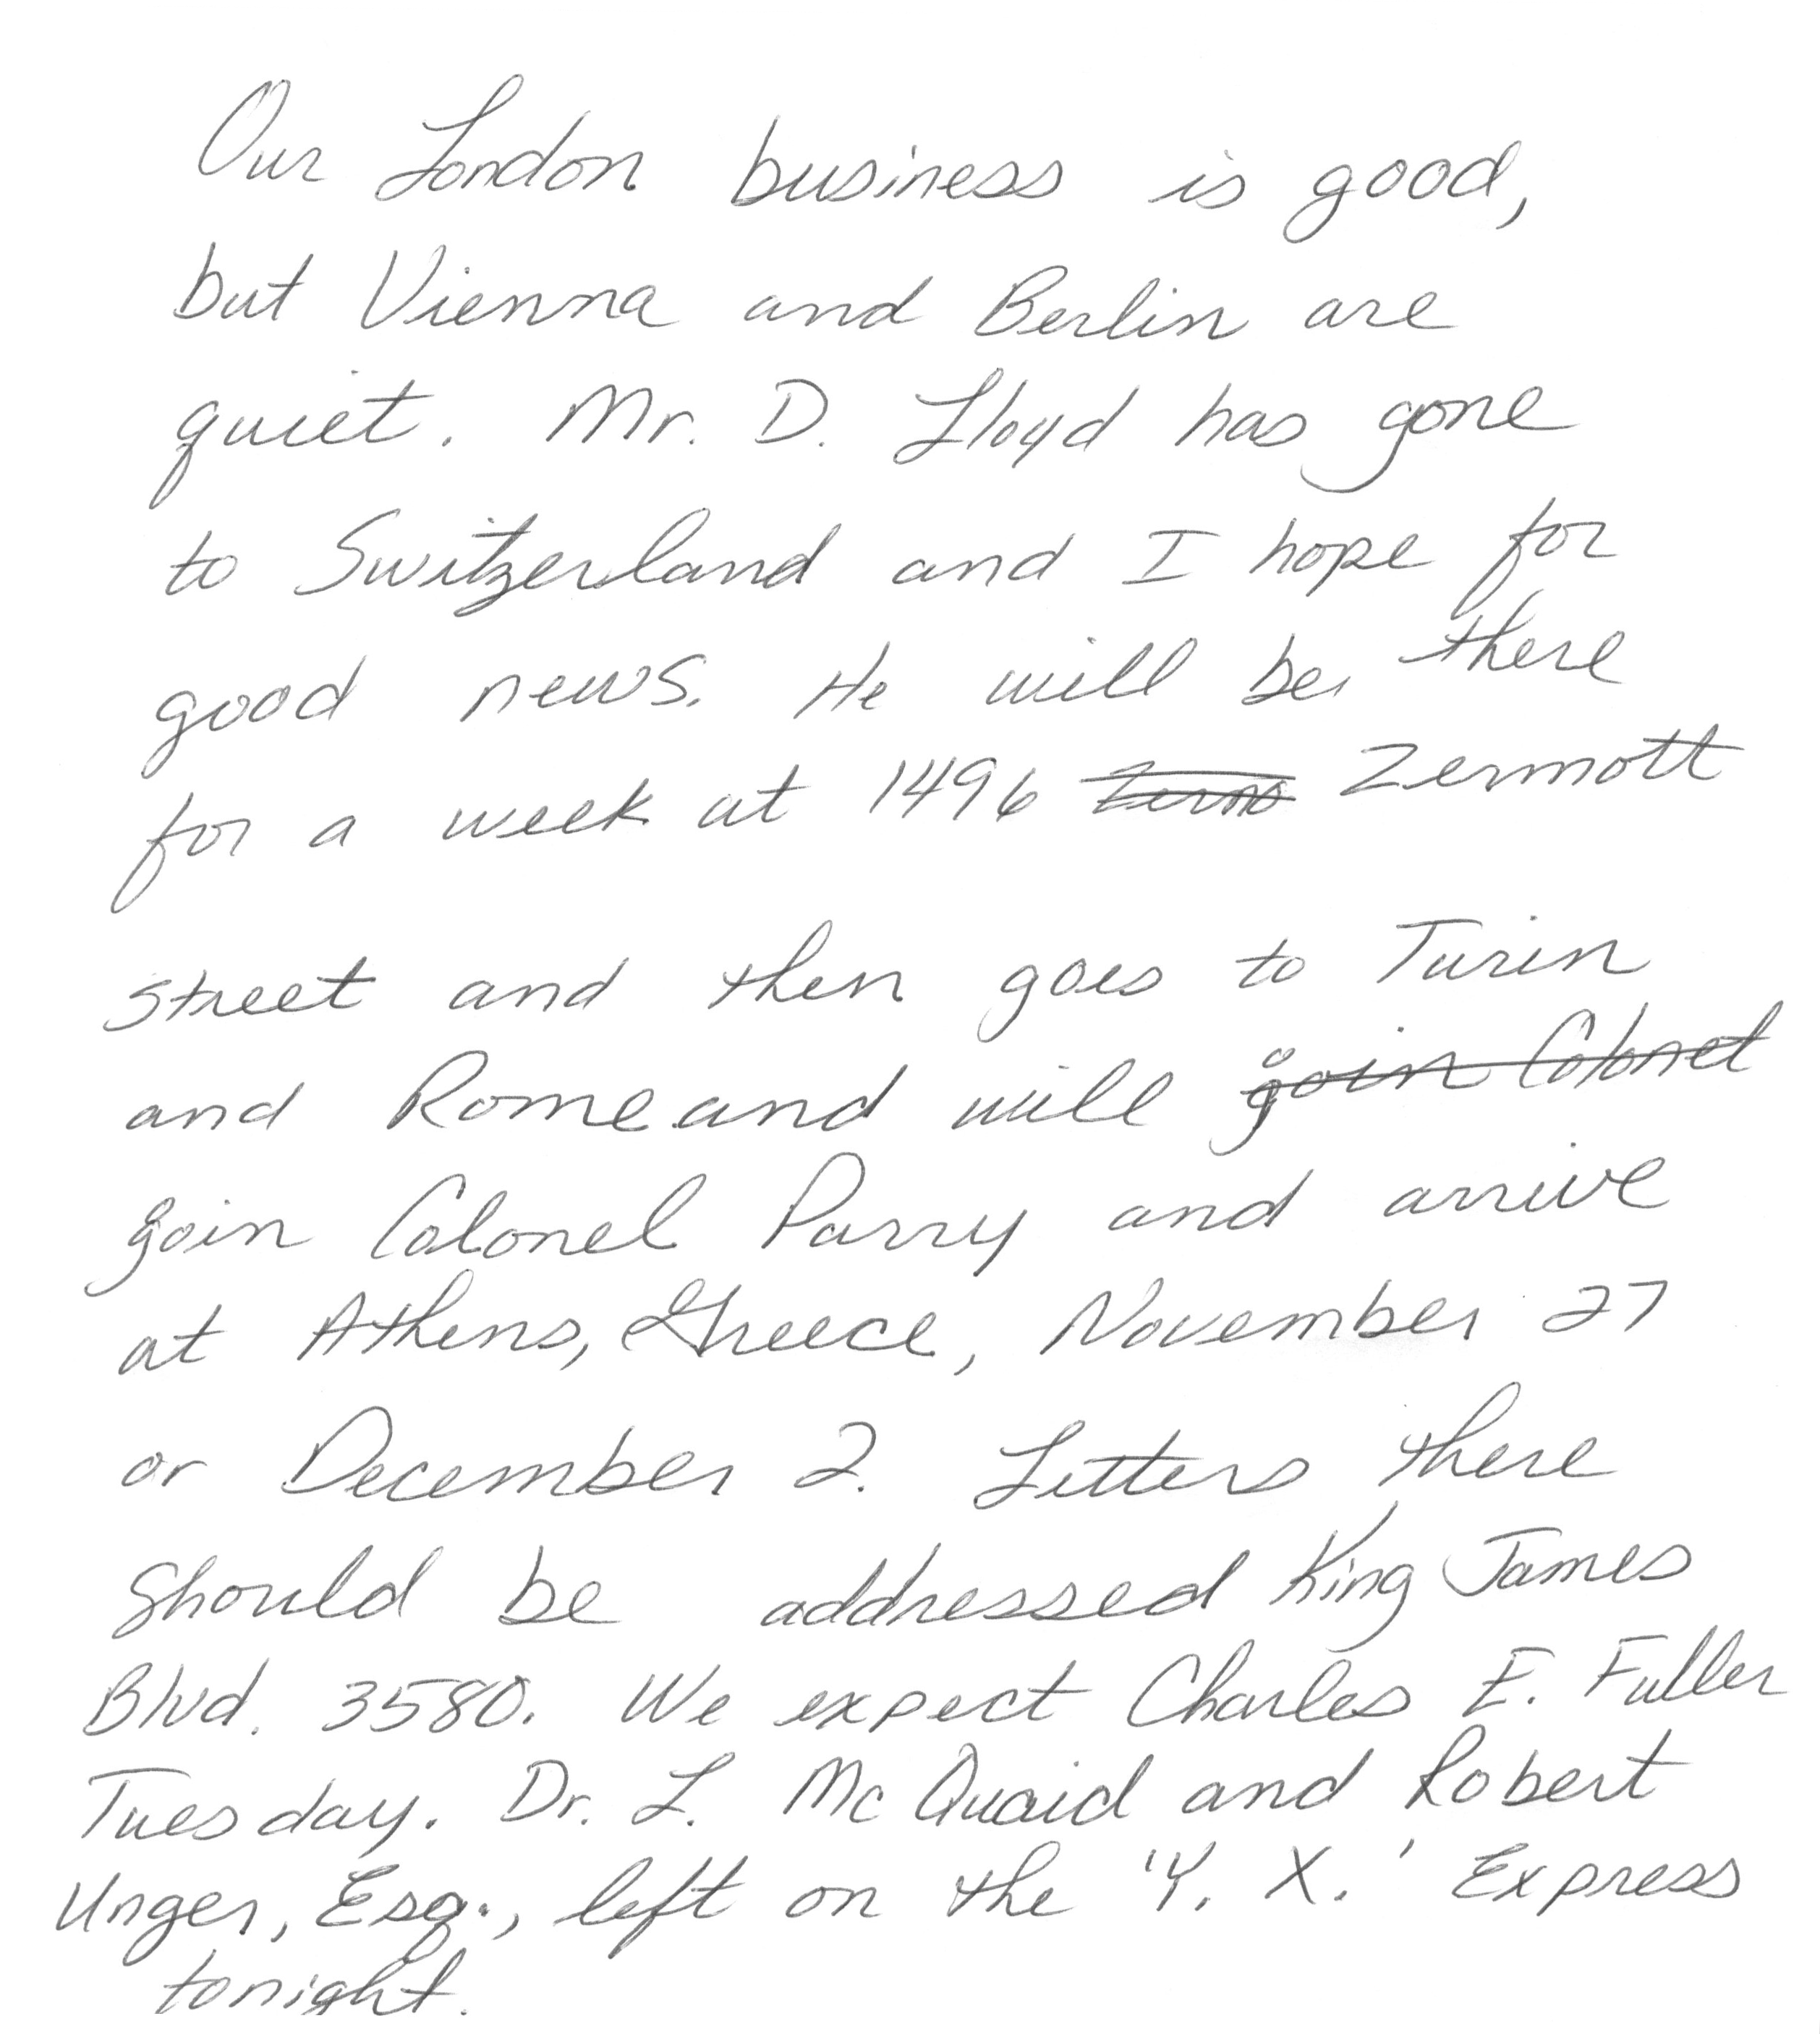 Our London business is good,
but Vienna and Berlin are
quiet. Mr. D. Lloyd has gone
to Switzerland and I hope for
good news. He will be there
for a week at 1496 Zermott
street and then goes to Turin
and Rome and will join Colonel
join Colonel Parry and arrive
at Athens, Greece, November 27
or December 2. Letters there
should be addressed King James
Blvd. 3580. We expect Charles E. Fuller
Tuesday. Dr. L. McQuaid and Robert
Unger, Esq., left on the 'Y. X.' Express
tonight.